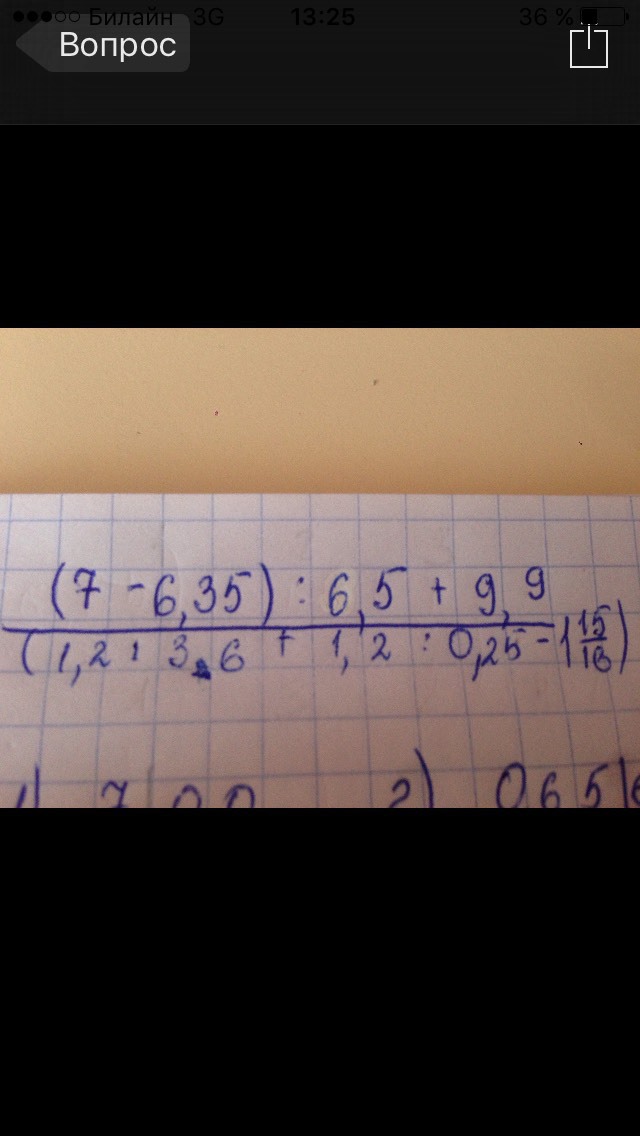 Билайн 3G 13:25 36 %
Вопрос
(7 - 6,35) : 6,5 + 9,9
(1,2 : 3,6 + 1,2 : 0,25 - 1 15/16)
2) 0651